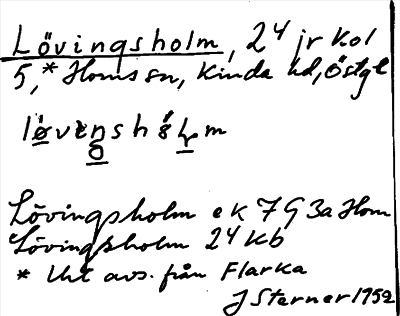 Lövingsholm, 24 jr kol
5,* Horns sn, Kinda hd, Östgl
Lövingsholm ek 7 G 3a Horn
Lövingsholm 24 Kb
* Utt avs. från Flarka
J Sterner 1952